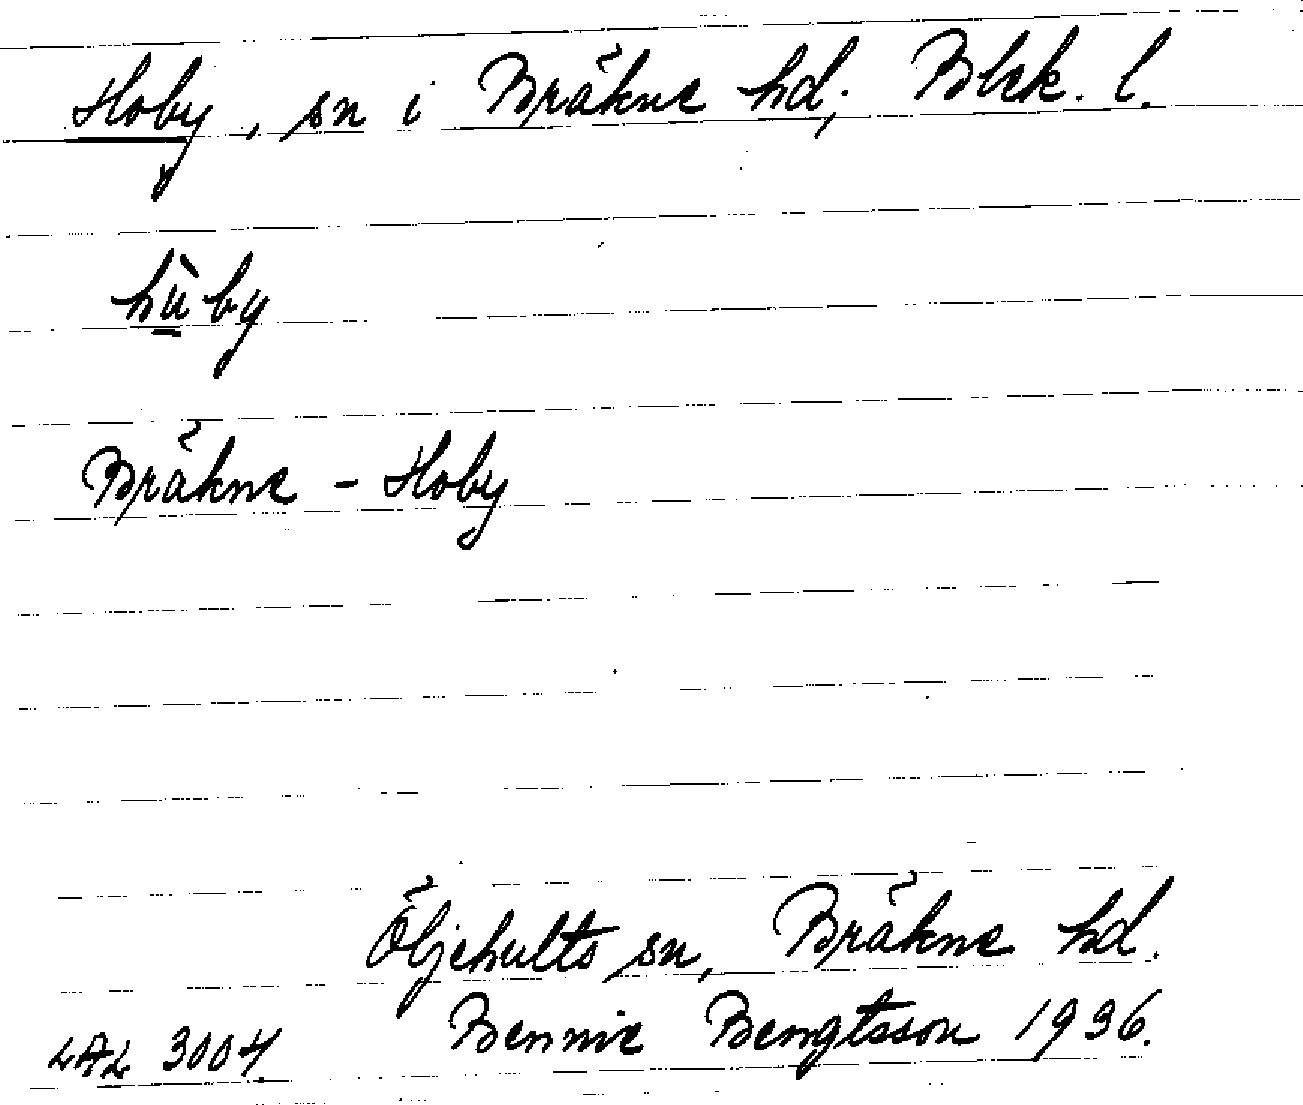 Hoby, sn i Bräkne hd, Blek. l.
hùby
Bräkne - Hoby
Öljehults sn, Bräkne hd.
LAL 3004 Bennie Bengtsson 1936.